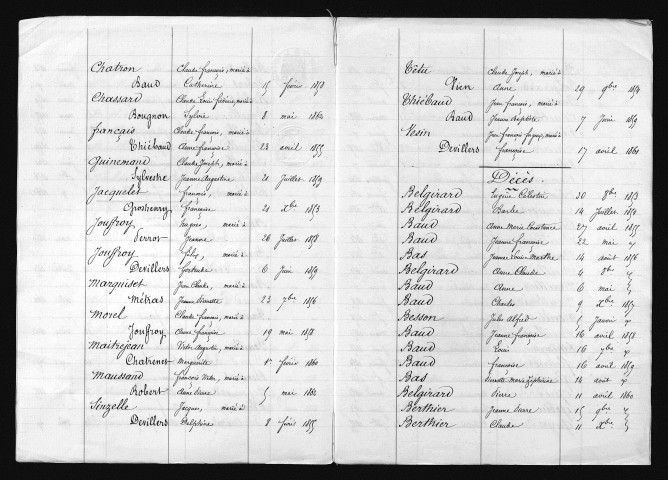 Chatron Claude françois, marié à
Baud Catherine 15 février 1858
Chassard Claude Louis marié à
Bougnon Sylvie 8 mai 1860
français Claude francois, marié à
Thiébaud Anne françoise 23 avril 1855
Guinemand Claude Joseph, marié à
Sylvestre Jeanne Augustine 21 Juillet 1859
Jacquelet françois, marié à
Groshenry françoise 21 Xbre 1853
Jouffroy Hugues, marié à
Perrot Jeanne 26 Juillet 1858
Jouffroy félix, marié à
Devillers Gertrude 6 Juin 1859
Marguiset Jean Claude, marié à
Métras Jeanne Pierrette 23 7bre 1856
Morel Claude francois, marié à
Jouffroy Anne françoise 19 mai 1858
Maitrejean Victor Augustin, marié à
Chatrenet Marguerite 1er février 1860
Maussand François Victor, marié à
Robert Anne Pierre 5 mai 1860
Sinzelle Jacques, marié à
Devillers Delphine 8 février 1855
Têtu Claude Joseph, marié à
Vien Anne 29 9bre 1854
Thiébaud Jean françois, marié à
Baud Jeanne Baptiste 7 Juin 1859
Vesin Jean françois marié à
Devillers françoise 17 avril 1860
Décès.
Belgirard Eugène Célestin 30 8bre 1853
Belgirard Barbe 14 Juillet 1854
Baud Anne Marie Constance 27 avril 1855
Baud Jeanne françoise 22 mai "
Bas Jeanne Louise Marthe 14 août 1856
Belgirard Anne Claude 4 8bre "
Baud Anne 6 mai "
Baud Charles 9 Xbre 1857
Besson Jules Alfred 5 Janvier "
Baud Jeanne françoise 16 avril 1858
Baud Louis 16 9bre "
Baud françoise 16 avril 1859
Bas Pierrette Marie Zéphirine 14 août "
Belgirard Pierre 11 avril 1860
Berthier Jeanne Pierre 15 9bre "
Berthier Claude 11 Xbre "